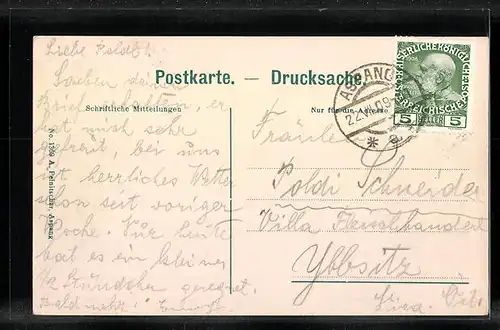 Liebe Poldi!
Soeben deinen
Brief erhalten, er
hat mich sehr
gefreut, bei uns
ist herrliches Wetter
schon seit voriger
Woche. Für heute
hat es ein kleines
1/2 Stündchen geregnet.
bald mehr!
Postkarte. — Drucksache.
Schriftliche Mitteilungen
Nur für die Adresse
No. 1599 A. Aspang
ASPANG
22.VI.09
* a
1908
5 HELLER 5
Fräulein
Poldi Schneider
Villa
Ybbsitz